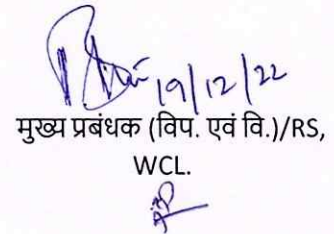 19/12/22
मुख्य प्रबंधक (विप. एवं वि.)/RS,
WCL.